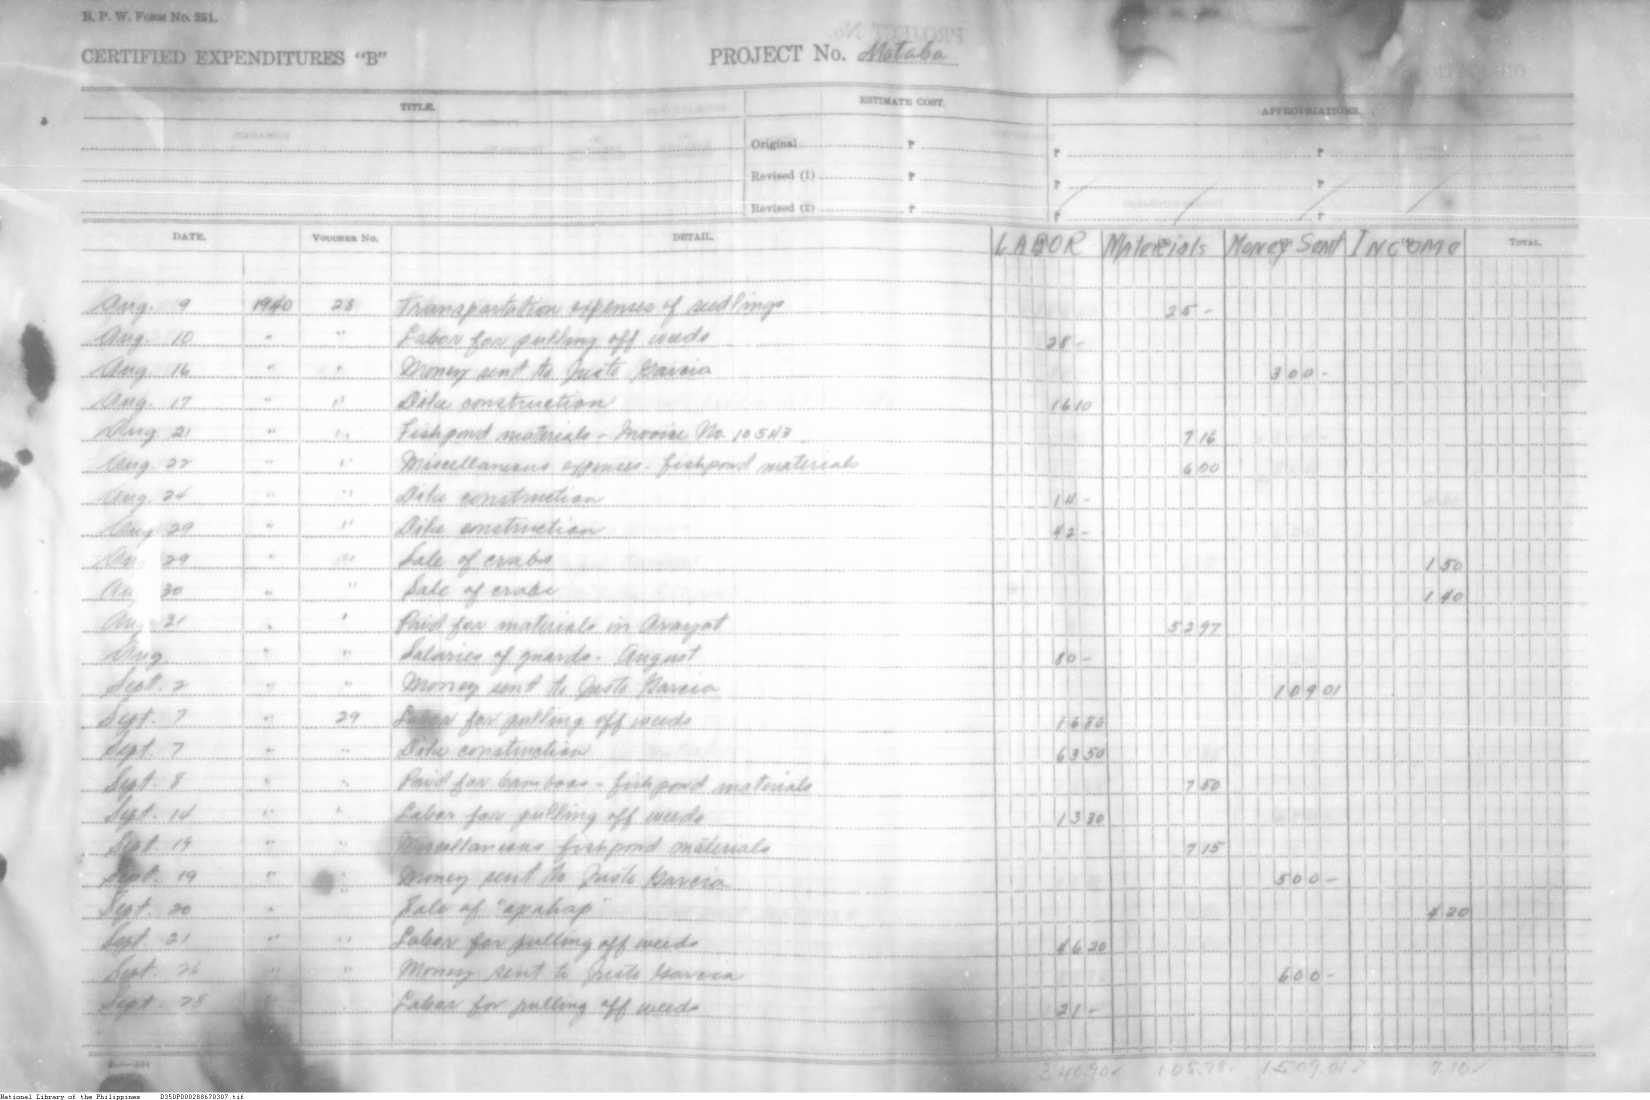 B. P. W. Form No. 251.
CERTIFIED EXPENDITURES "B" PROJECT No. Mataba
TITLE. ESTIMATE COST. APPROPRIATIONS.
Original ₱ ₱ ₱
Revised (1) ₱ ₱ ₱
Revised (2) ₱ ₱ ₱
DATE. VOUCHER No. DETAIL. LABOR Materials Money Sent INCOME TOTAL.
Aug. 9 1940 28 Transportation expenses of seedlings 25 -
Aug. 10 " " Labor for pulling off weeds 28 -
Aug. 16 " " Money sent to Justo Garcia 300 -
Aug. 17 " " Dike construction 16 10
Aug 21 " " Fishpond materials - Invoice No. 10543 7 16
Aug. 22 " " Miscellaneous expenses - fishpond materials 6 00
Aug. 24 " " Dike construction 14 -
Aug 29 " " Dike construction 42 -
29 " " Sale of crabs 1 50
30 " " Sale of crabs 1 40
Aug 31 " " Paid for materials in Arayat 52 97
Aug " " Salaries of guards - August 80 -
Sept. 2 " " Money sent to Justo Garcia 109 01
Sept. 7 " 29 Labor for pulling off weeds 16 80
Sept. 7 " " Dike construction 63 50
Sept. 8 " " Paid for bamboos - fishpond materials 7 50
Sept. 14 " " Labor for pulling off weeds 13 30
Sept. 14 " " Miscellaneous fishpond materials 7 15
Sept. 19 " " Money sent to Justo Garcia 500 -
Sept. 20 " Sale of "apahap" 4 20
Sept. 21 " " Labor for pulling off weeds 46 20
Sept. 26 " " Money sent to Justo Garcia 600 -
Sept. 28 Labor for pulling off weeds 21 -
340.90 105.78 1509.01 7.10
National Library of the Philippines D350P000288670307.tif